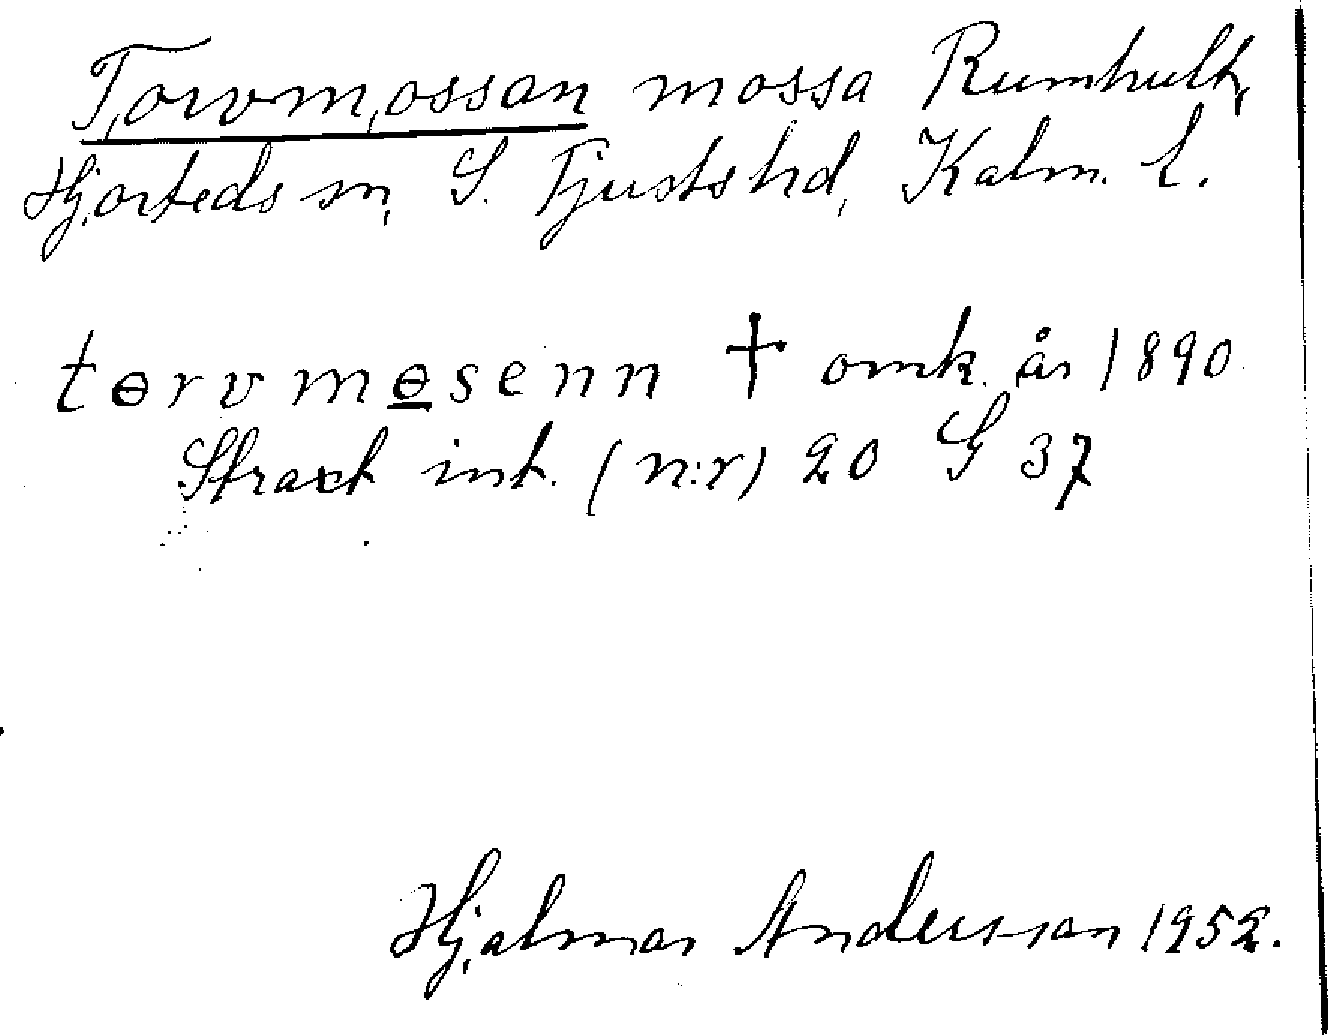 Torvmossan mossa Rumhult,
Hjorteds sn, S. Tjusts hd, Kalm. l.
tɵrvmɵsenn † omk. år 1890
Straxt int. (n:r) 20 G 37
Hjalmar Andersson 1952.